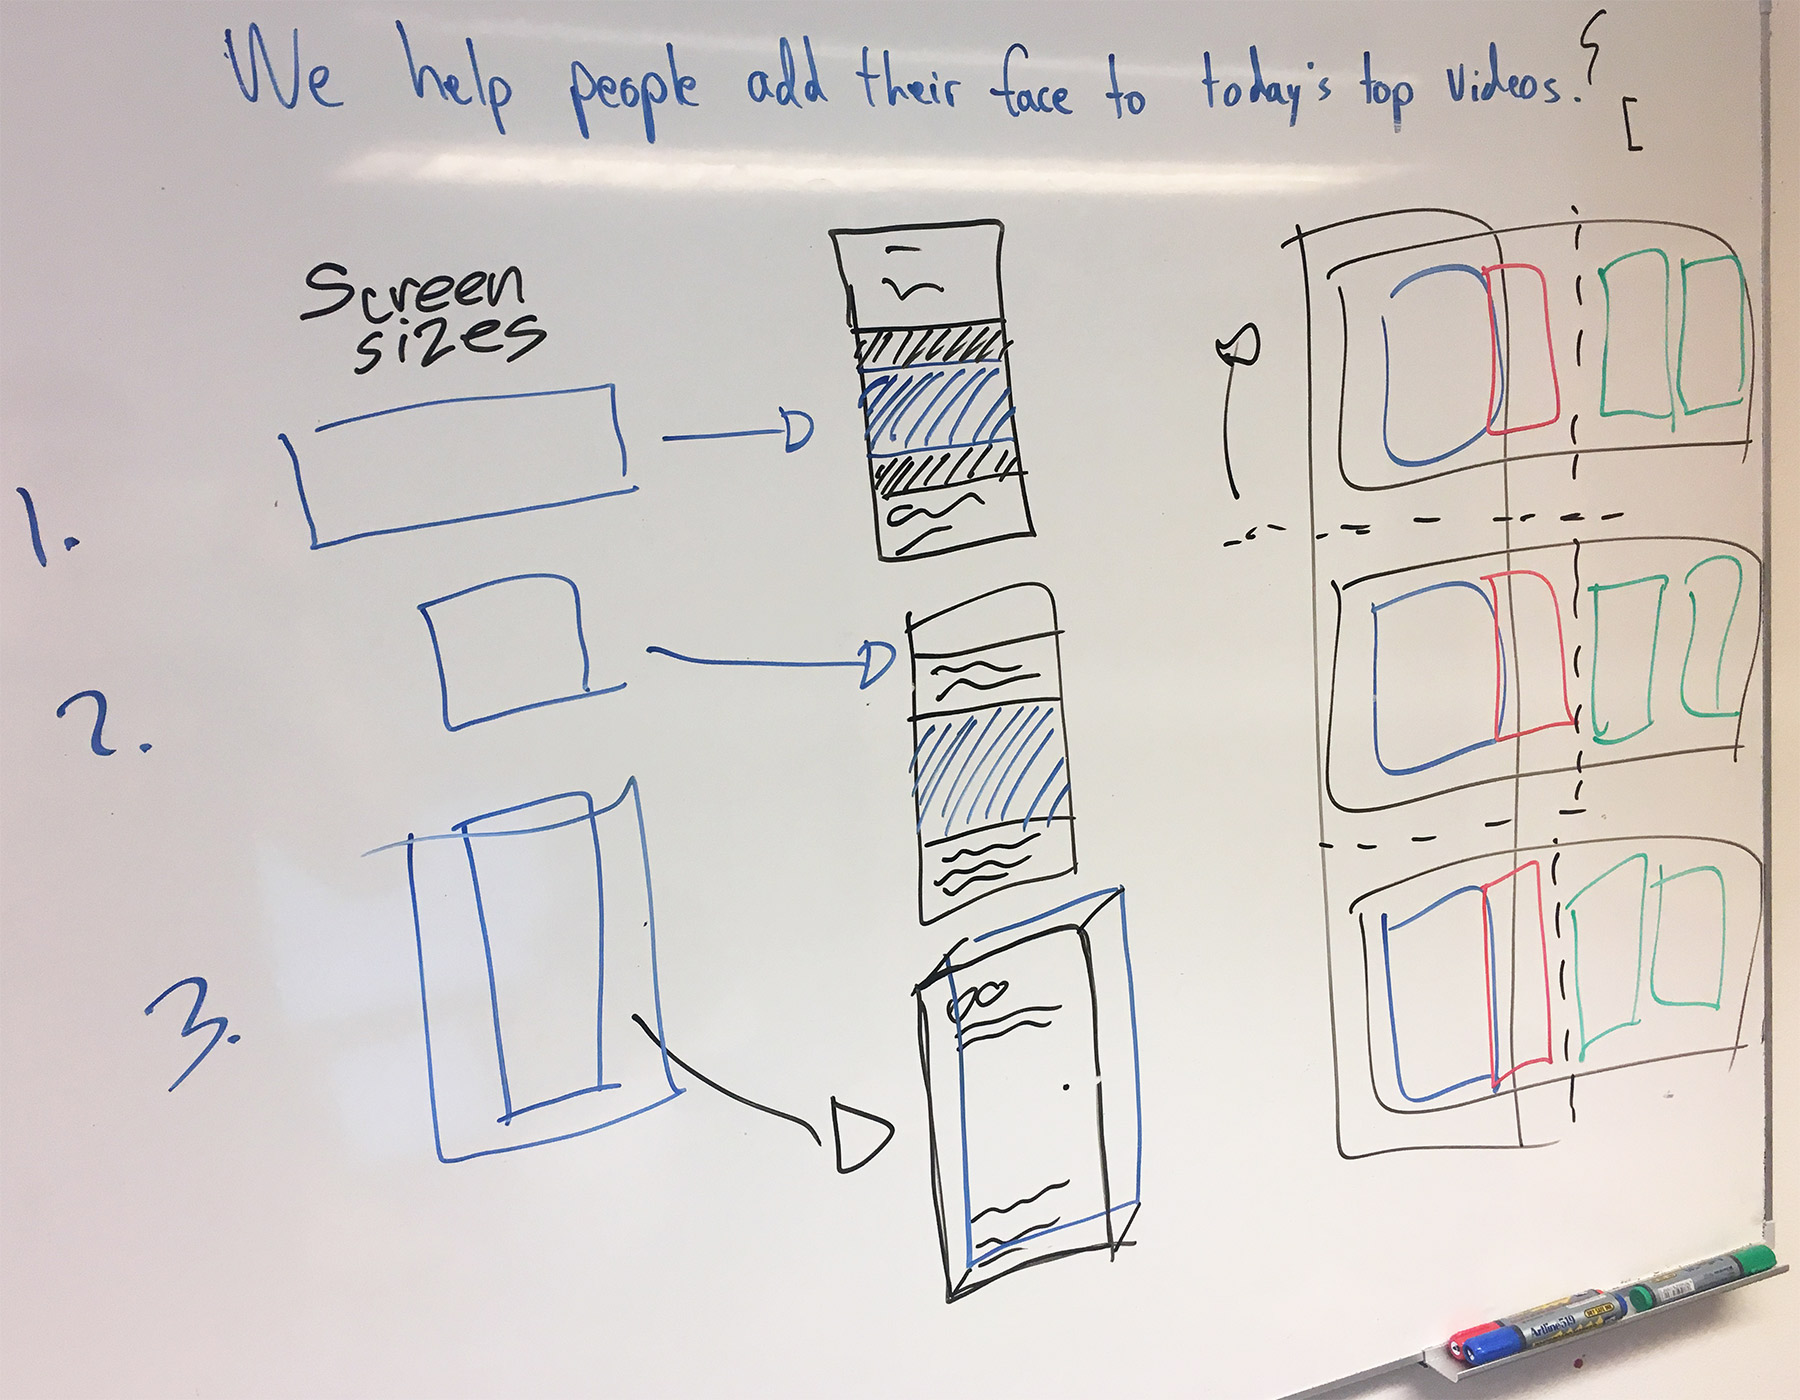 We help people add their face to today's top videos.
Screen
sizes
1.
2.
3.
Artline 519